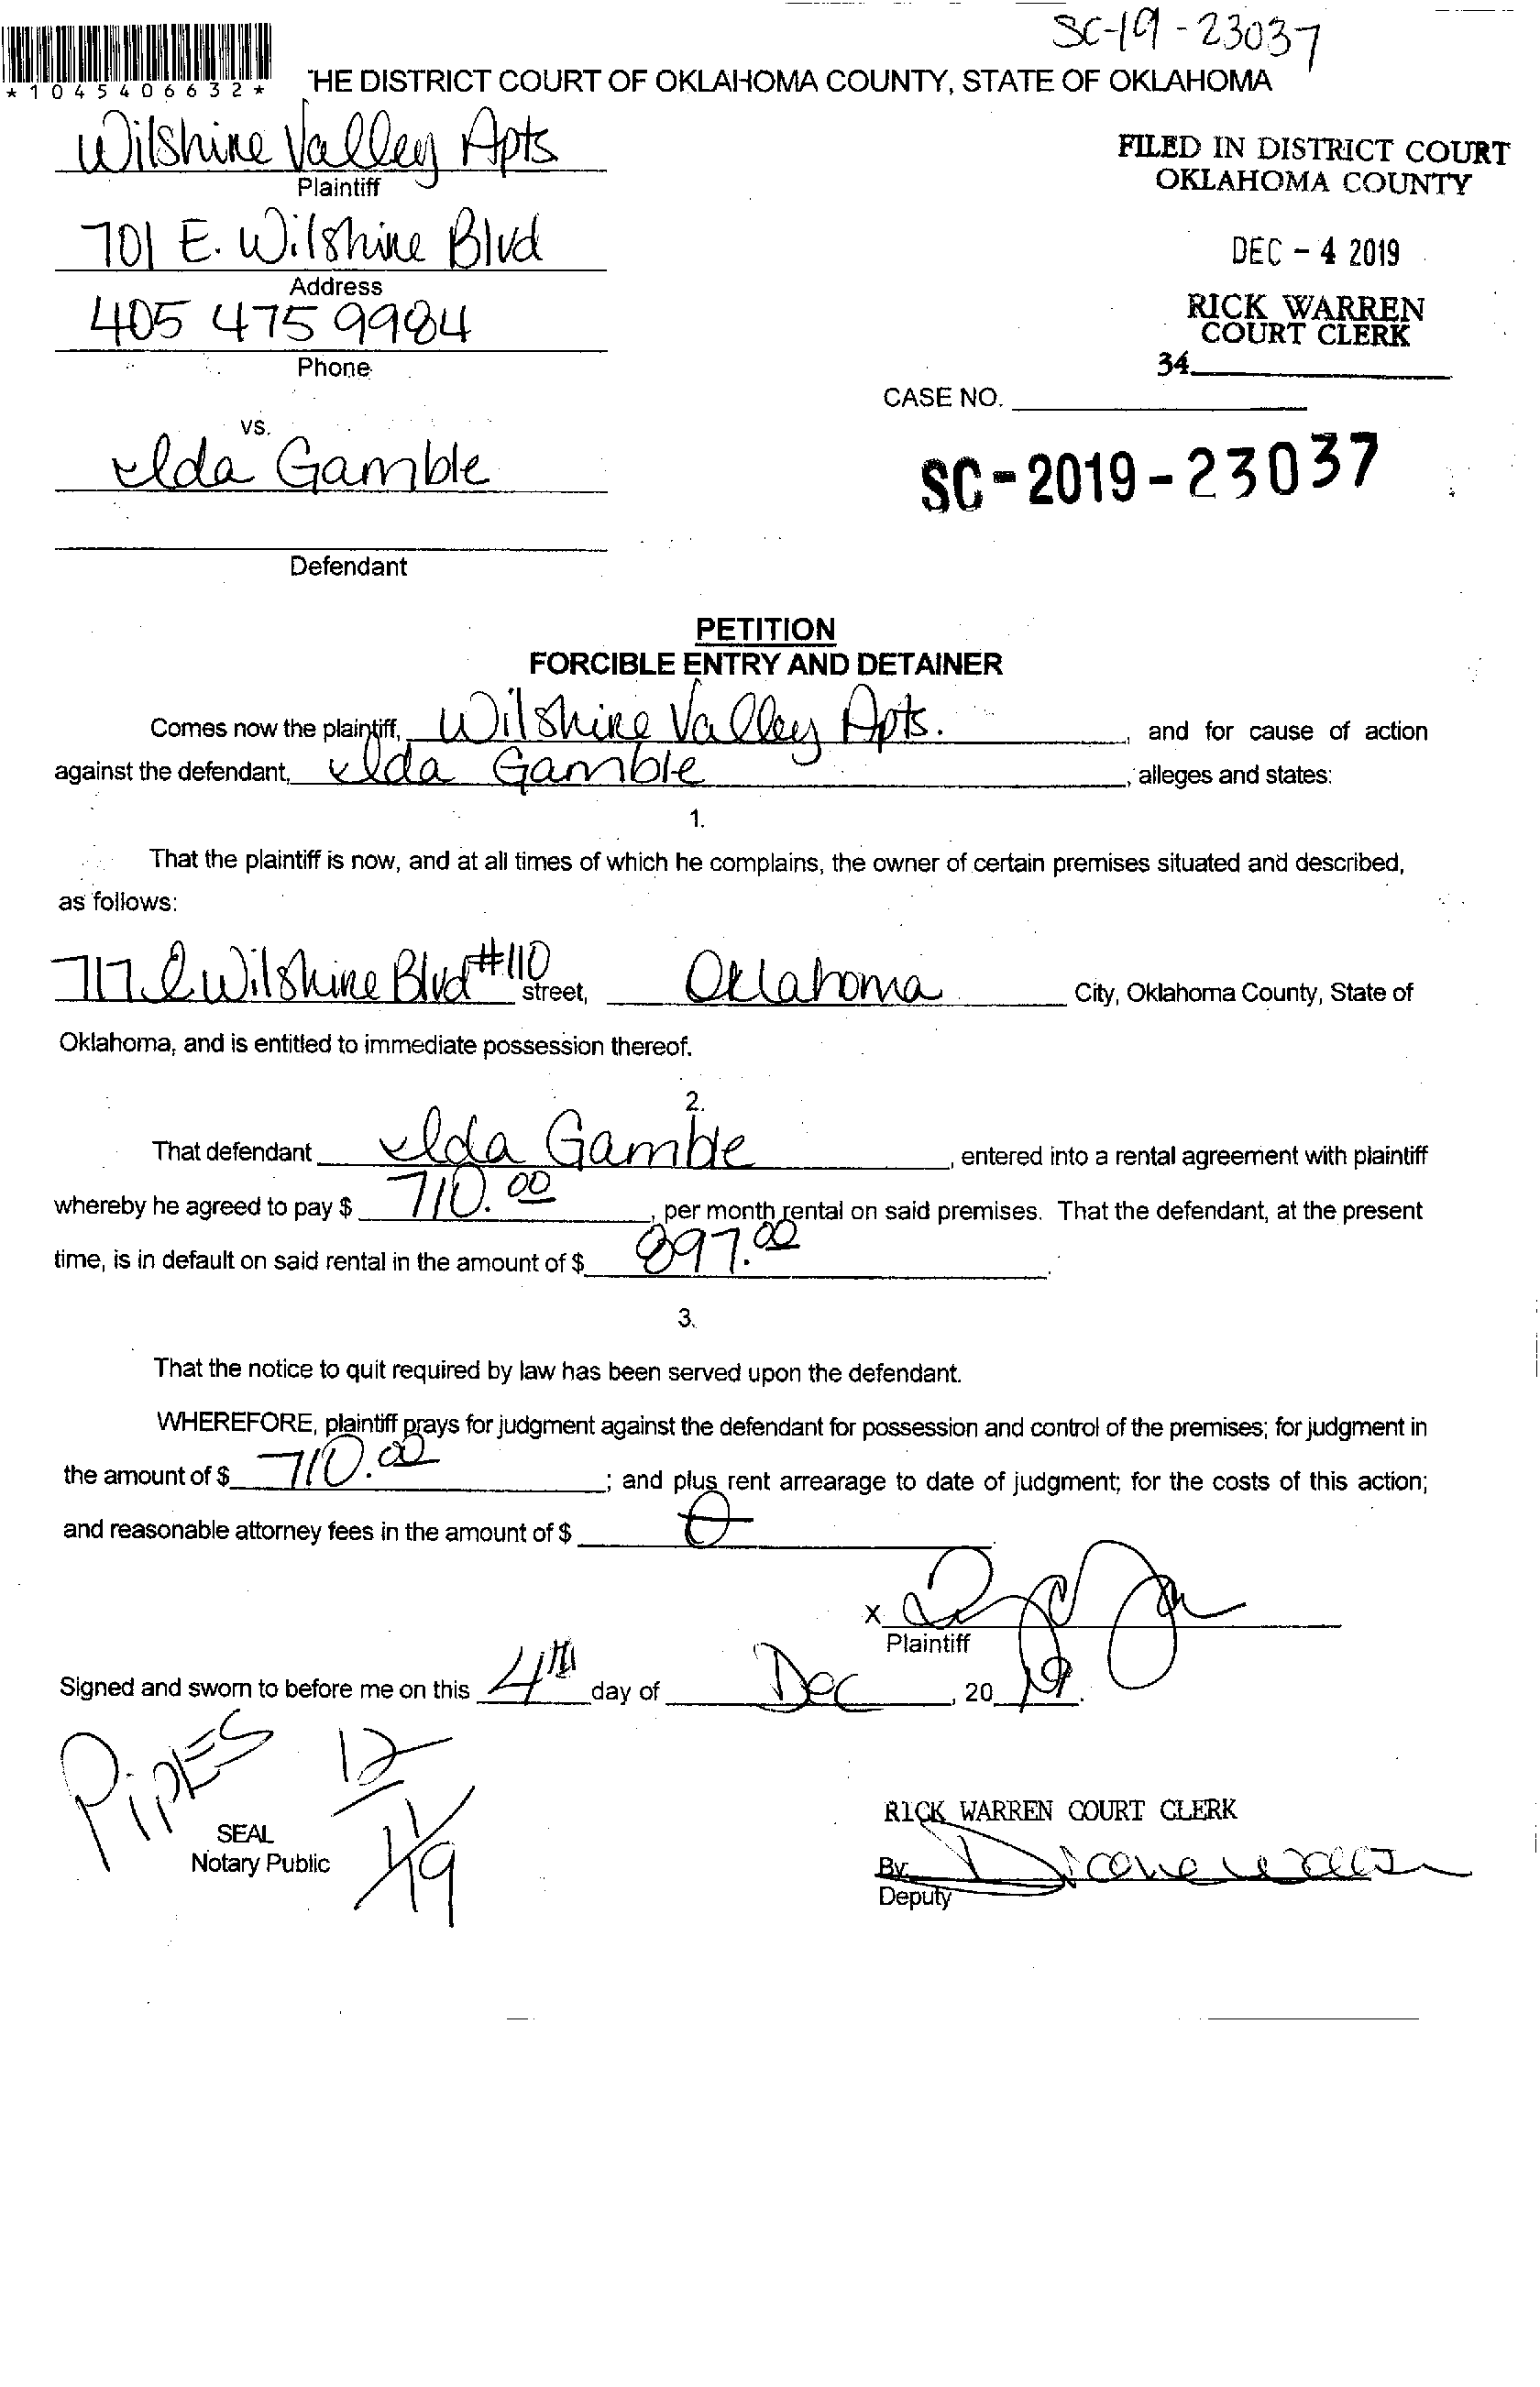 SC-19-23037
*1045406632*
THE DISTRICT COURT OF OKLAHOMA COUNTY, STATE OF OKLAHOMA
Wilshire Valley Apts
Plaintiff
FILED IN DISTRICT COURT
OKLAHOMA COUNTY
701 E. Wilshire Blvd
Address
DEC - 4 2019
405 475 9984
Phone
RICK WARREN
COURT CLERK
34
CASE NO.
vs.
Ida Gamble
SC-2019-23037
Defendant
PETITION
FORCIBLE ENTRY AND DETAINER
Comes now the plaintiff, Wilshire Valley Apts. , and for cause of action
against the defendant, Ida Gamble , alleges and states:
1.
That the plaintiff is now, and at all times of which he complains, the owner of certain premises situated and described,
as follows:
717 E Wilshire Blvd #110 street, Oklahoma City, Oklahoma County, State of
Oklahoma, and is entitled to immediate possession thereof.
2.
That defendant Ida Gamble , entered into a rental agreement with plaintiff
whereby he agreed to pay $ 710.00 , per month rental on said premises. That the defendant, at the present
time, is in default on said rental in the amount of $ 897.00 .
3.
That the notice to quit required by law has been served upon the defendant.
WHEREFORE, plaintiff prays for judgment against the defendant for possession and control of the premises; for judgment in
the amount of $ 710.00 ; and plus rent arrearage to date of judgment; for the costs of this action;
and reasonable attorney fees in the amount of $ 0
X
Plaintiff
Signed and sworn to before me on this 4th day of Dec , 20 19 .
PIPES 12/11/19
SEAL
Notary Public
RICK WARREN COURT CLERK
By
Deputy